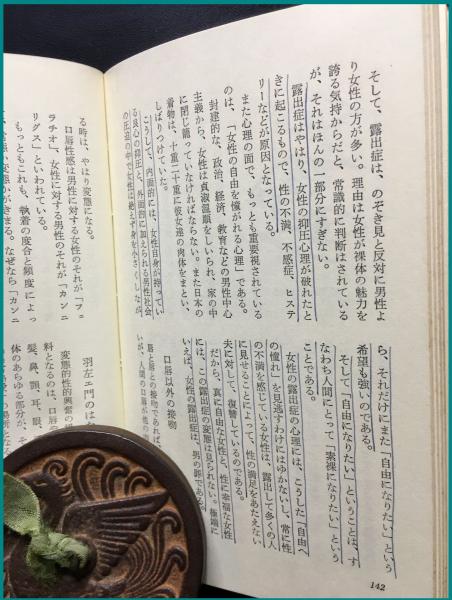 そして、露出症は、のぞき見と反対に男性よ
り女性の方が多い。理由は女性が裸体の魅力を
誇る気持からだと、常識的に判断はされている
が、それはほんの一部分にすぎない。
露出症はやはり、女性の抑圧心理が破れたと
きに起こるもので、性の不満、不感症、ヒステ
リーなどが原因となっている。
また心理の面で、もっとも重要視されている
のは、「女性の自由を憧がれる心理」である。
封建的な、政治、経済、教育などの男性中心
主義から、女性は貞淑温順をしいられ、家の中
に閉じ籠っていなければならない。また日本の
着物は、十重二十重に彼女達の肉体をまとい、
しばりつけていた。
こうして、内面的には、女性自身が持ってい
る良心の抑圧と、外面的に加えられる男性社会
の圧迫の中で女性は絶えず身を小さくしなが
ら、それだけにまた「自由になりたい」という
希望も強いのである。
そして「自由になりたい」ということは、す
なわち人間にとって「素裸になりたい」という
ことである。
女性の露出症の心理には、こうした「自由へ
の憧れ」を見逃すわけにはゆかないし、常に性
の不満を感じている女性は、露出して多くの人
に見せることによって、性の満足をあたえない
夫に対して、復讐しているのである。
だから、真に自由な女性と、性に幸福な女性
には、この露出症の変態は見られない。極端に
いえば、女性の露出症は、男の罪である。
口唇以外の接吻
唇と唇との接吻であれば
いが、人間の口唇が他の
る時は、やはり変態になる。
口唇性感は男性に対する女性のそれが「フェ
ラチオ」、女性に対する男性のそれが「カンニ
リグス」といわれている。
もっともこれも、執着の度合と頻度によっ
変態かがきまる。なぜなら「カンニ
羽左ェ門のはな
変態的性的興奮の
料となるのは、口唇
髪、鼻、頭、耳、眼、
体のあらゆる部分が、そ
142